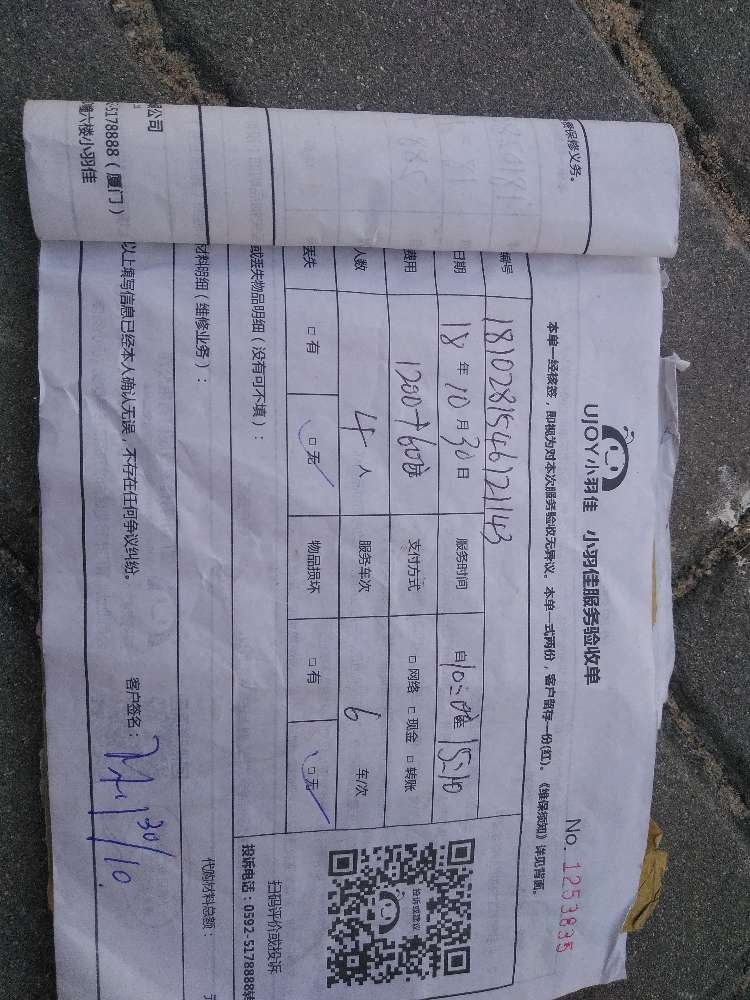 UJOY小羽佳 小羽佳服务验收单
No. 1253835
本单一经核签,即视为对本次服务验收无异议。本单一式两份,客户留存一份(红)。《维保须知》详见背面。
编号 181028154612 1143
日期 18年10月30日 服务时间 自10:
费用 1200+60 支付方式 □网络 □现金 □转账
人数 4人 服务车次 6 车/次
丢失 □有 □无 物品损坏 □有 □无
或丢失物品明细(没有可不填):
材料明细(维修业务):
代购材料总额:
以上填写信息已经本人确认无误,不存在任何争议纠纷。
客户签名: 30/10.
投诉或建议
扫码评价或投诉
投诉电话:0592-5178888转
保修义务。
公司
5178888(厦门)
六楼小羽佳